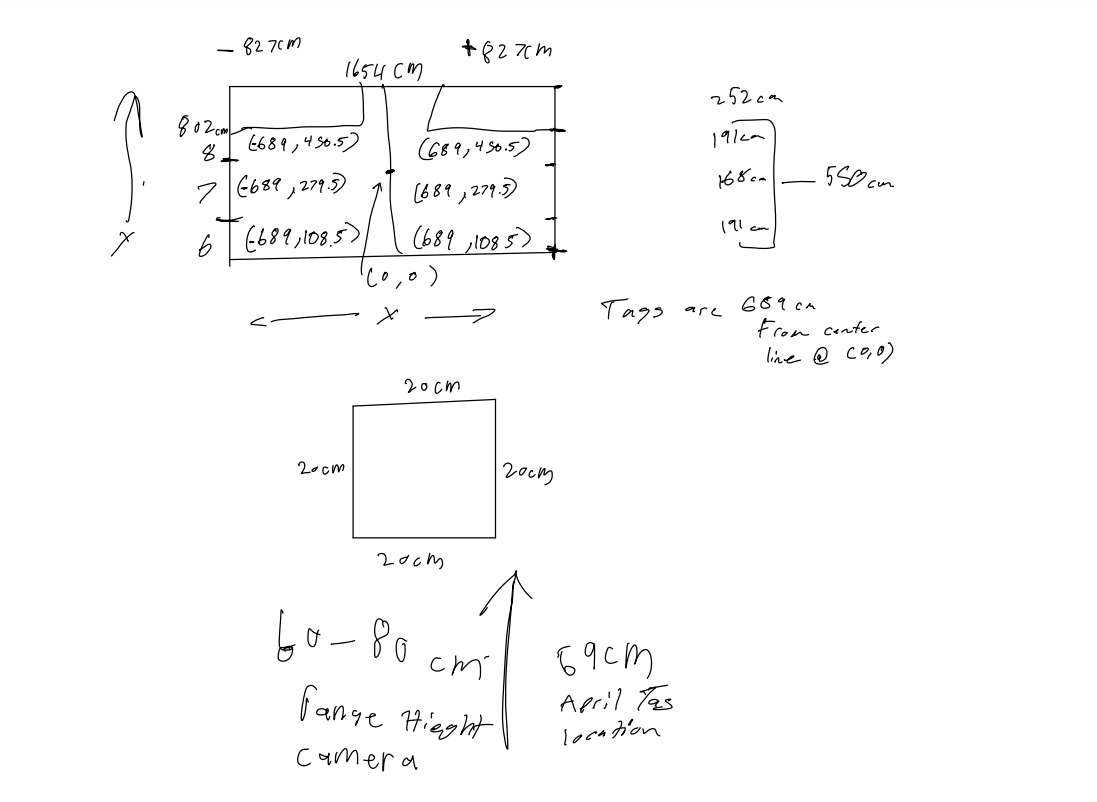 - 827cm
+827cm
1654 CM
802cm
8
(-689, 430.5)
(689, 430.5)
7
(-689, 279.5)
(689, 279.5)
6
(-689, 108.5)
(689, 108.5)
(0,0)
Y
X
252cm
191cm
168cm
550cm
191cm
Tags are 689cm
From center
line @ (0,0)
20cm
20cm
20cm
20cm
60-80 cm
range Hieght
camera
69cm
April Tag
location